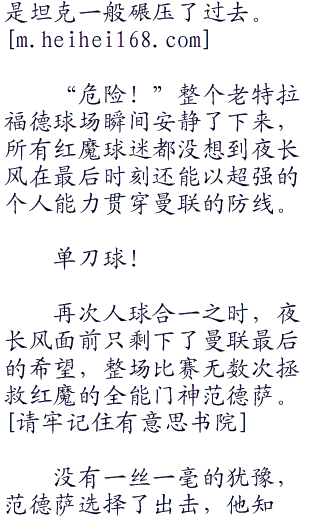 是坦克一般碾压了过去。
[m.heihei168.com]
“危险！”整个老特拉
福德球场瞬间安静了下来，
所有红魔球迷都没想到夜长
风在最后时刻还能以超强的
个人能力贯穿曼联的防线。
单刀球！
再次人球合一之时，夜
长风面前只剩下了曼联最后
的希望，整场比赛无数次拯
救红魔的全能门神范德萨。
[请牢记住有意思书院]
没有一丝一毫的犹豫，
范德萨选择了出击，他知